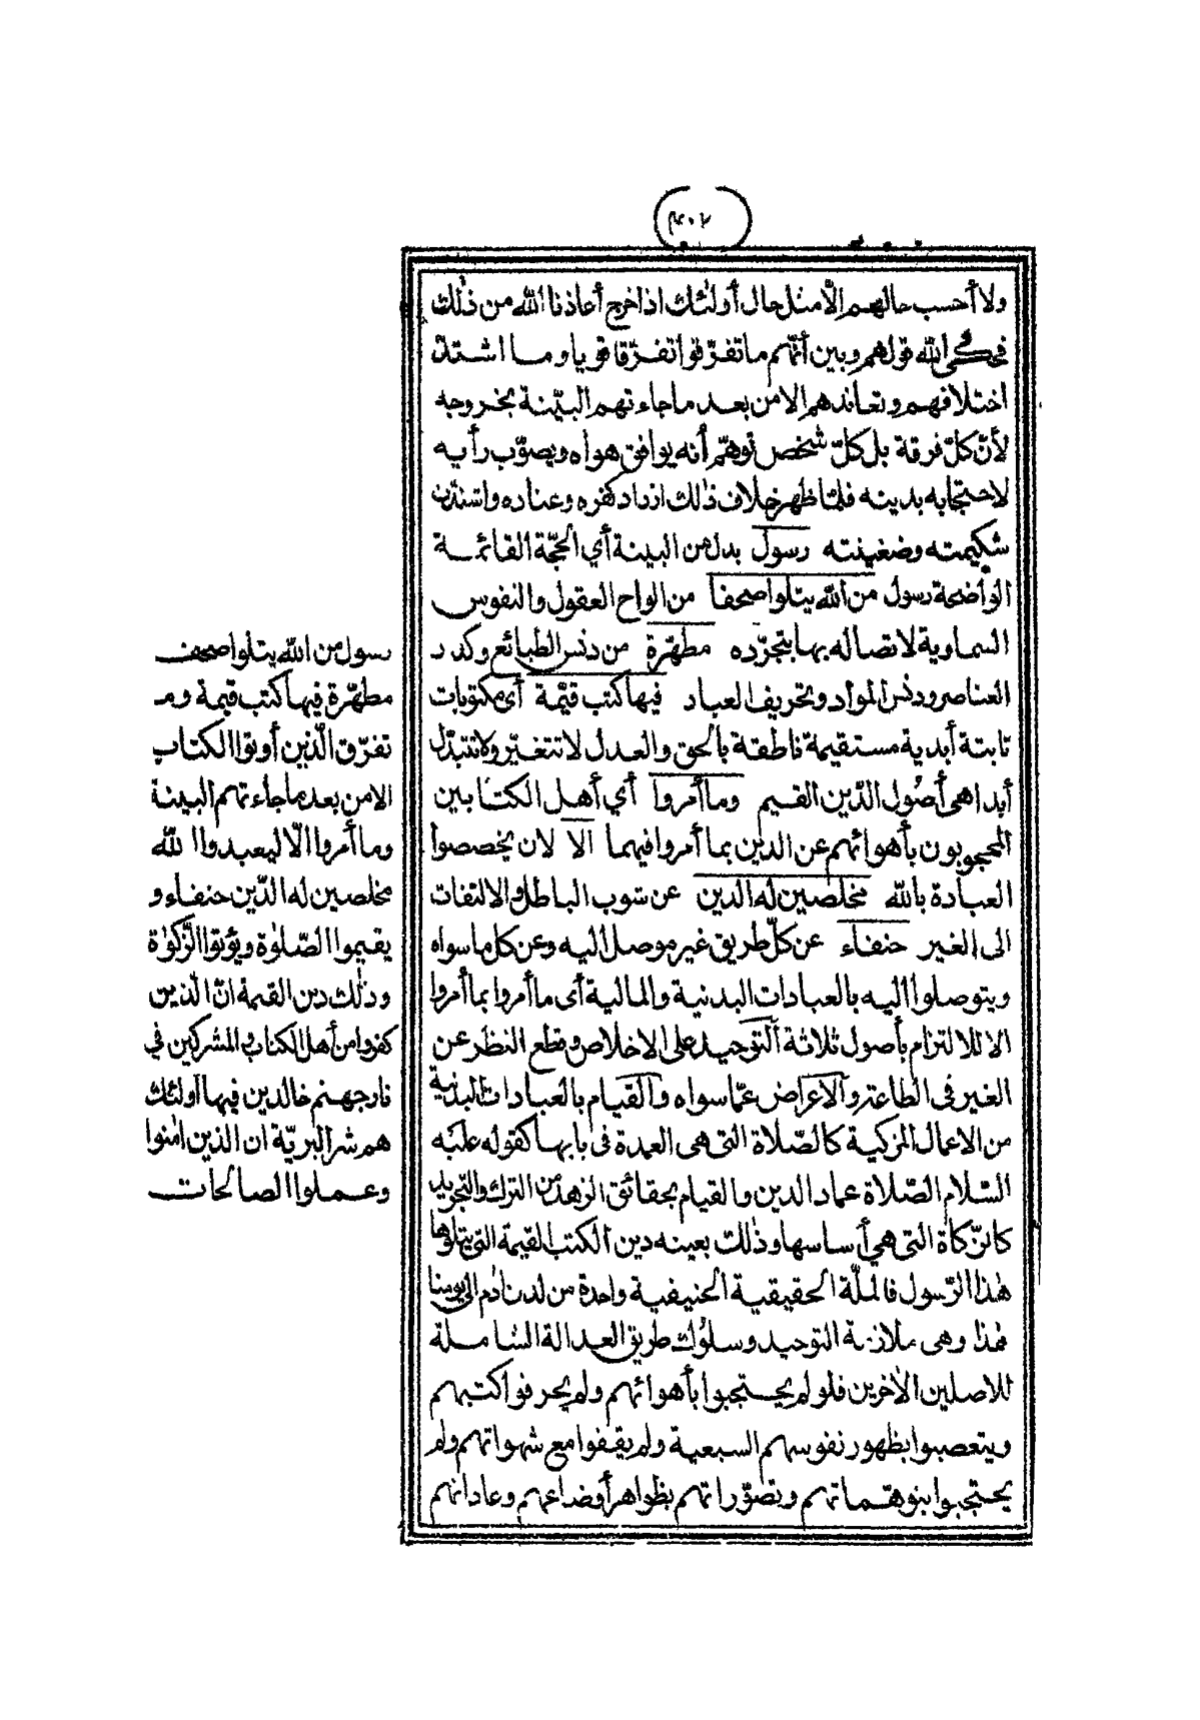 ٤٠٢
ولا أحسب حالهم إلّا مثل حال أولئك اذا خرج أعاذنا الله من ذلك
فحكى الله قولهم وبين أنّهم ما تفرّقوا تفرّقا قويا وما اشتدّ
اختلافهم وتعاندهم الا من بعد ما جاءتهم البيّنة بخروجه
لأنّ كلّ فرقة بل كلّ شخص توهّم أنه يوافق هواه ويصوّب رأيه
لاحتجابه بدينه فلمّا ظهر خلاف ذلك ازداد كفره وعناده واشتدّت
شكيمته وضغينته رسول بدل من البينة أي الحجّة القائمة
الواضحة رسول من الله يتلوا صحفا من الواح العقول والنفوس
السماوية لاتصاله بها بتجرّده مطهّرة من دنس الطبائع وكدر
العناصر ودنس المواد وتحريف العباد فيها كتب قيّمة أي مكتوبات
ثابتة أبدية مستقيمة ناطقة بالحق والعدل لا تتغيّر ولا تتبدّل
أبدا هي أصول الدّين القيم وما أمروا أي أهل الكتابين
المحجوبون بأهوائهم عن الدين بما أمروا فيهما الا لان يخصصوا
العبادة بالله مخلصين له الدين عن شوب الباطل والالتفات
الى الغير حنفاء عن كلّ طريق غير موصل اليه وعن كل ما سواه
ويتوصلوا اليه بالعبادات البدنية والمالية أي ما أمروا بما أمروا
الا للالتزام بأصول ثلاثة التوحيد على الاخلاص وقطع النظر عن
الغير في الطاعة والاعراض عمّا سواه والقيام بالعبادات البدنية
من الاعمال المزكية كالصّلاة التي هي العمدة في بابها كقوله عليه
السّلام الصّلاة عماد الدين والقيام بحقائق الزهد من الترك والتجريد
كالزّكاة التي هي أساسها وذلك بعينه دين الكتب القيمة التي يتلوها
هذا الرّسول فالملّة الحقيقية الحنيفية واحدة من لدن آدم الى يومنا
هذا وهي ملازمة التوحيد وسلوك طريق العدالة الشاملة
للاصلين الأخرين فلو لم يحتجبوا بأهوائهم ولم يحرفوا كتبهم
ويتعصبوا بظهور نفوسهم السبعية ولم يقفوا مع شهواتهم ولم
يحتجبوا بتوهّماتهم وتصوّراتهم بظواهر أوضاعهم وعاداتهم
رسول من الله يتلوا صحف
مطهّرة فيها كتب قيمة وم
تفرّق الّذين أوتوا الكتاب
الا من بعد ما جاءتهم البينة
وما أمروا الّا ليعبدوا الله
مخلصين له الدّين حنفاء و
يقيموا الصّلوة ويؤتوا الزّكوة
وذلك دين القيمة انّ الذين
كفروا من أهل الكتاب والمشركين في
نار جهنم خالدين فيها أولئك
هم شر البريّة ان الذين امنوا
وعملوا الصالحات